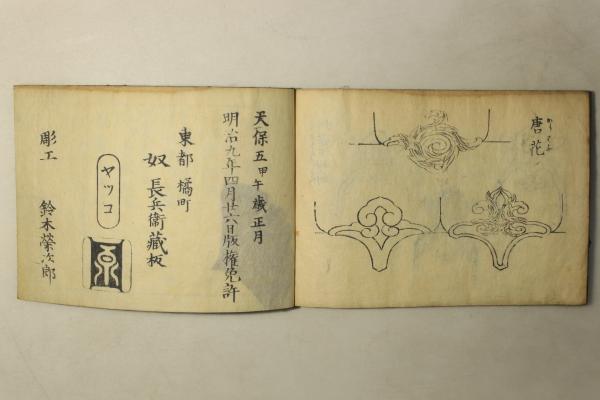 唐花
天保五甲午歳正月
明治九年四月廿六日版權免許
東都 橘町
奴 長兵衛藏板
ヤッコ
彫工 鈴木榮次郎